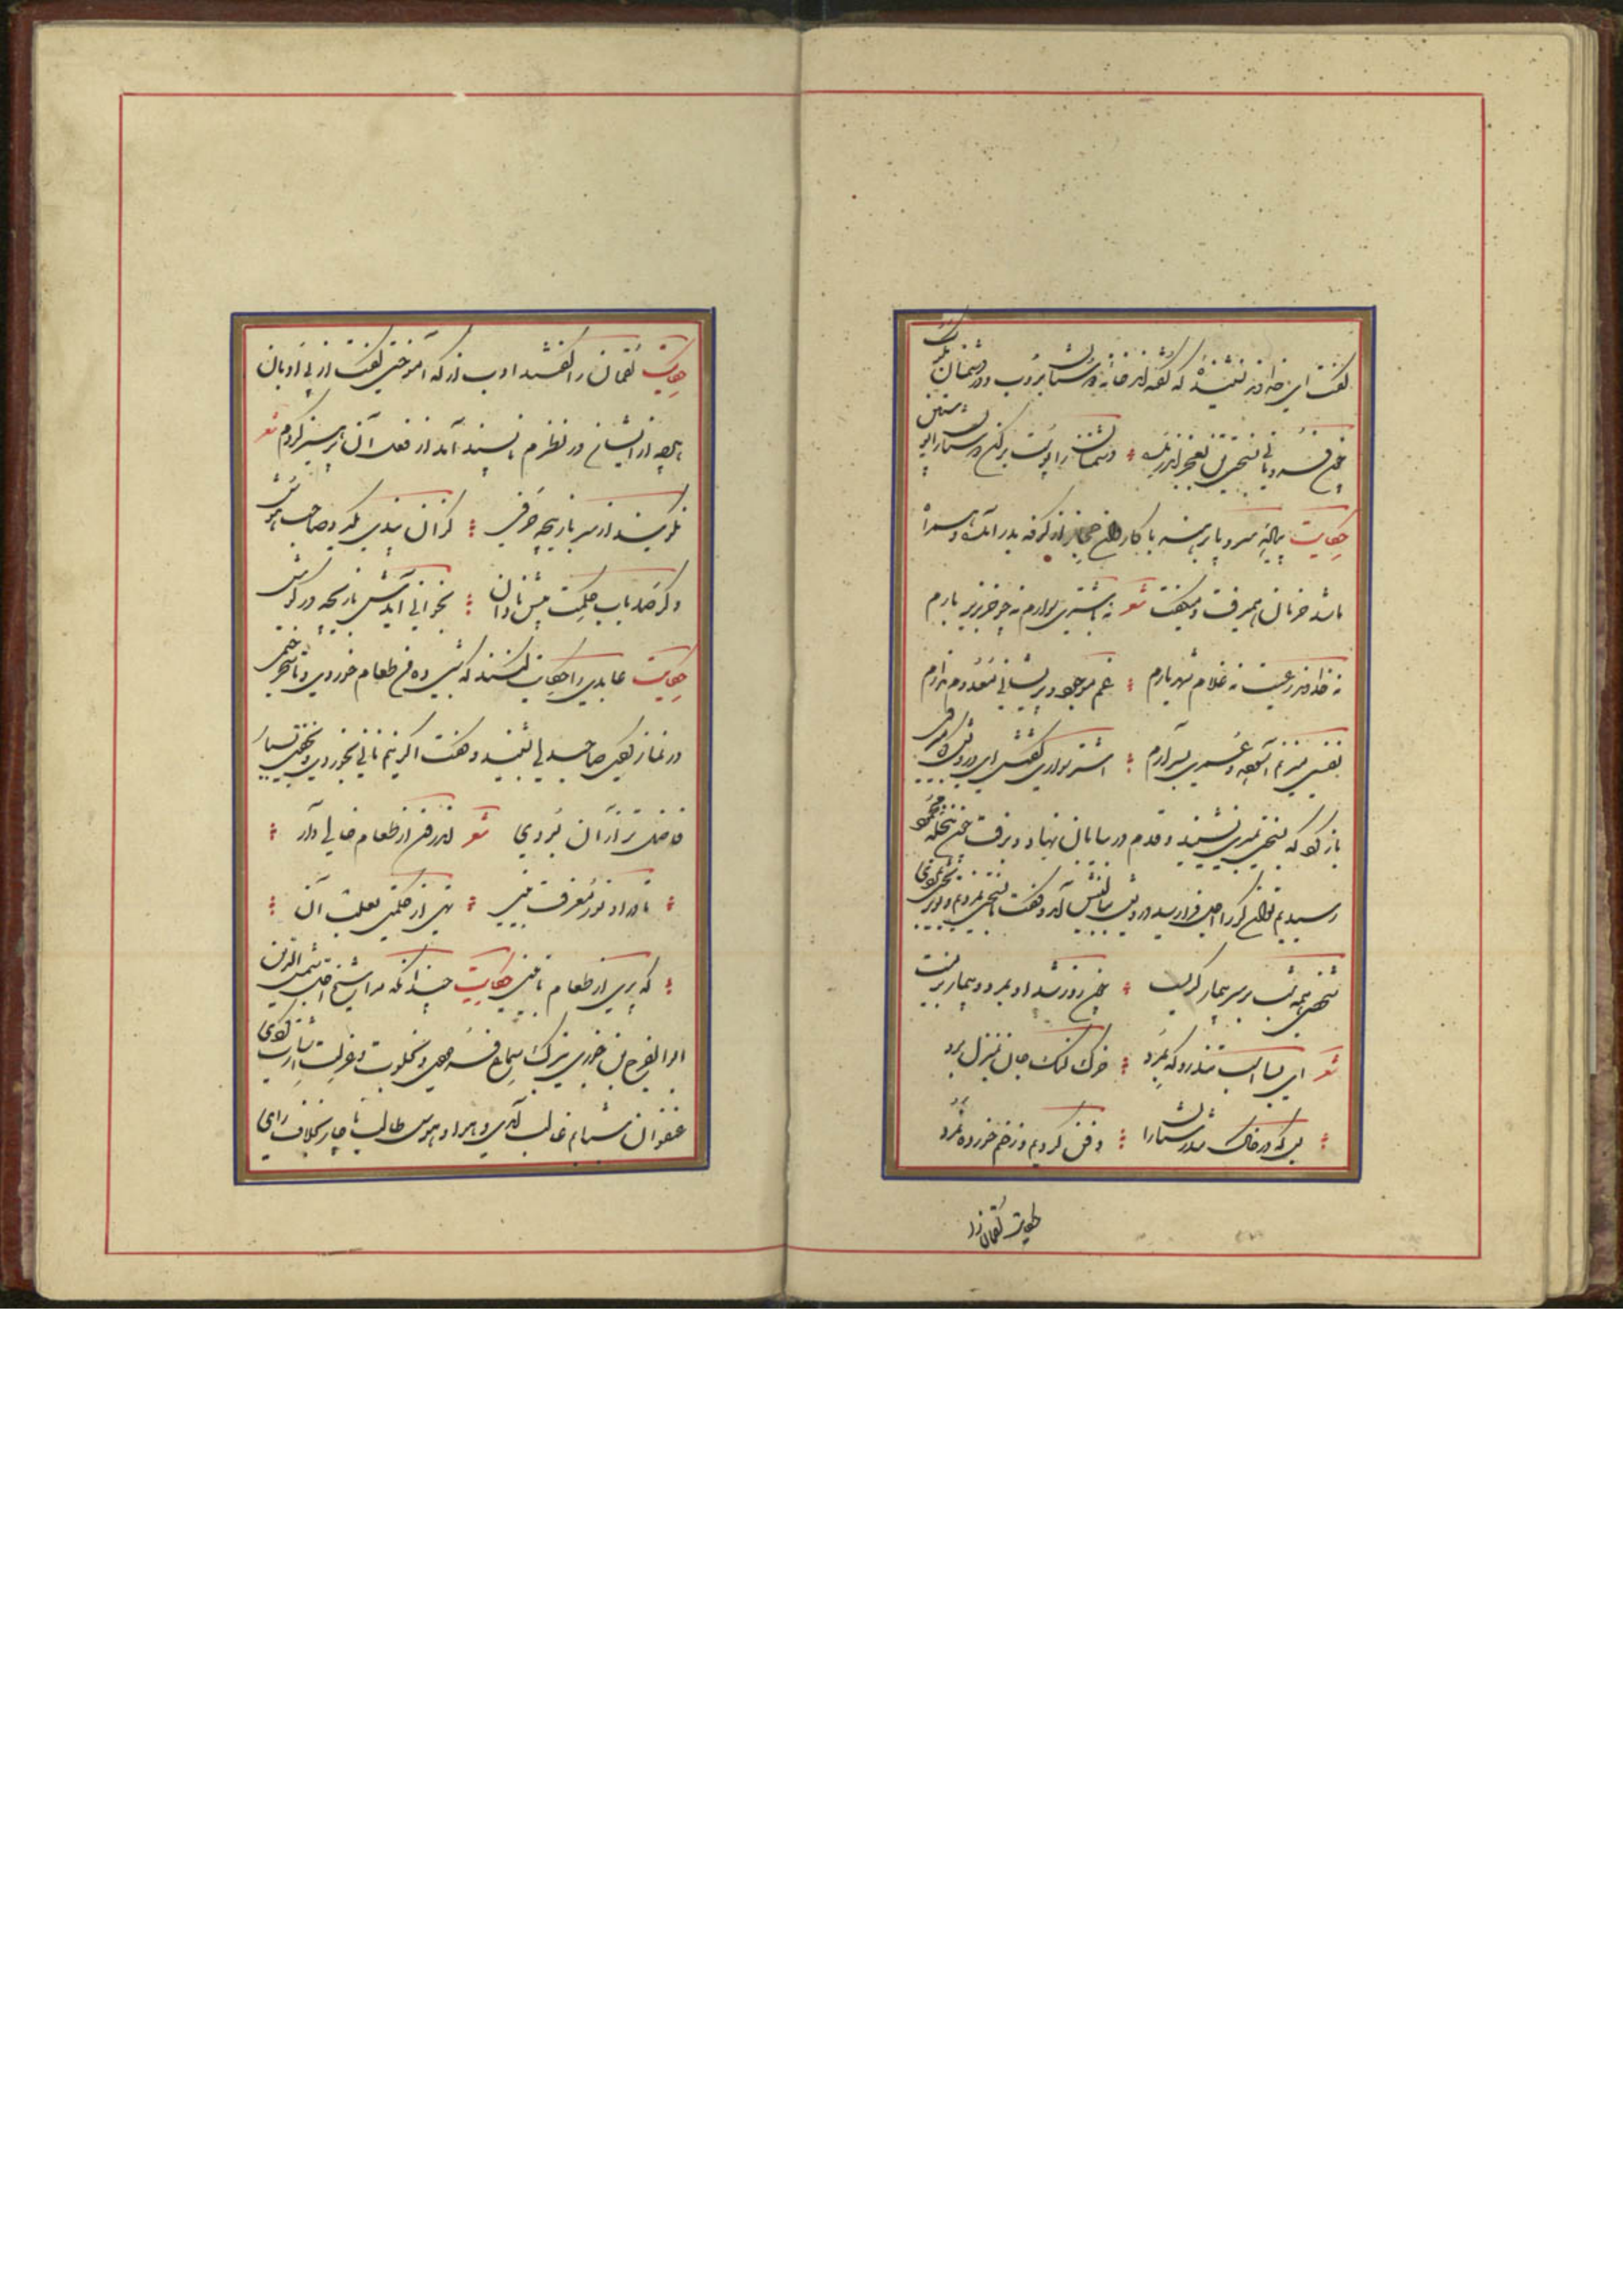 گفت ای خداوند نشنیده که گفته‌اند خانه دوستان بروب و در دشمنان مکوب
چون فرو مانی بسختی تن بعجز اندر مده دشمنان را پوست برکن دوستان را پوستین
حکایت پیاده سر و پا برهنه با کاروان حجاز از کوفه بدر آمد و همراه
ما شد خرامان همیرفت و میگفت شعر نه باشتری سوارم نه چو خر بزیر بارم
نه خداوند رعیت نه غلام شهریارم غم موجود و پریشانی معدوم ندارم
نفسی میزنم آسوده و عمری بسر آرم اشتر سواری گفتش ای درویش کجا میروی
باز گرد که بسختی بمیری نشنید و قدم در بیابان نهاد و برفت چون بنخله محمود
رسیدیم توانگر را اجل فرا رسید درویش ببالینش آمد و گفت ما بسختی نمردیم و تو بر بختی بمردی
شخصی همه شب بر سر بیمار گریست چون روز شد او بمرد و بیمار بزیست
شعر ای بسا اسب تیزرو که بمرد خرک لنگ جان بمنزل برد
بس که در خاک تندرستان را دفن کردیم و زخم خورده نمرد
حکایت لقمان را
حکایت لقمان را گفتند ادب از که آموختی گفت از بی ادبان
هرچه از ایشان در نظرم ناپسند آمد از فعل آن پرهیز کردم شعر
نگویند از سر بازیچه حرفی کزان پندی نگیرد صاحب هوش
و گر صد باب حکمت پیش نادان بخوانی آیدش بازیچه در گوش
حکایت عابدی را حکایت کنند که شبی ده من طعام خوردی و تا سحر ختمی
در نماز بکردی صاحبدلی بشنید و گفت اگر نیم نانی بخوردی و بخفتی بسیار
فاضل‌تر از آن بودی شعر اندرون از طعام خالی دار
تا درو نور معرفت بینی تهی از حکمتی بعلت آن
که پری از طعام تا بینی حکایت چندانکه مرا شیخ اجل شمس الدین
ابوالفرج بن جوزی بترک سماع فرمودی و بخلوت و عزلت اشارت کردی
عنفوان شبابم غالب آمدی و هوا و هوس طالب ناچار بخلاف رای